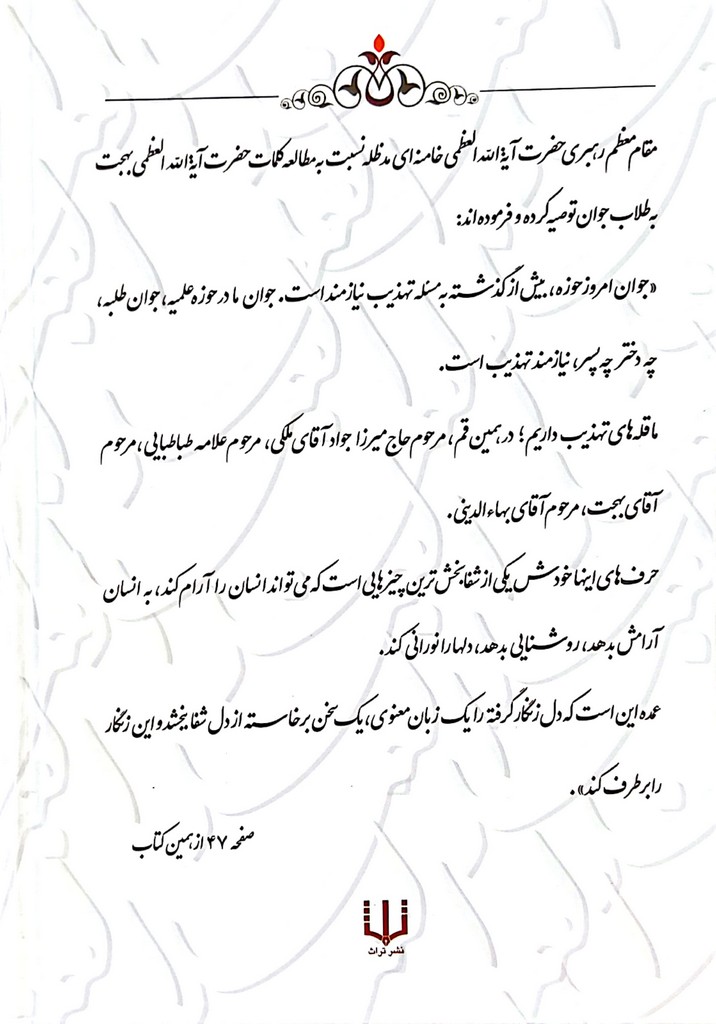 مقام معظم رهبری حضرت آیة الله العظمی خامنه ای مدظله نسبت به مطالعه کلمات حضرت آیة الله العظمی بهجت
به طلاب جوان توصیه کرده و فرموده اند:
«جوان امروز حوزه، بیش از گذشته به مسئله تهذیب نیازمند است. جوان ما در حوزه علمیه، جوان طلبه،
چه دختر چه پسر، نیازمند تهذیب است.
ما قله های تهذیب داریم؛ در همین قم، مرحوم حاج میرزا جواد آقای ملکی، مرحوم علامه طباطبایی، مرحوم
آقای بهجت، مرحوم آقای بهاءالدینی.
حرف های اینها خودش یکی از شفابخش ترین چیزهایی است که می تواند انسان را آرام کند، به انسان
آرامش بدهد، روشنایی بدهد، دلها را نورانی کند.
عمده این است که دل زنگار گرفته را یک زبان معنوی، یک سخن برخاسته از دل شفا ببخشد و این زنگار
را برطرف کند».
صفحه ۴۷ از همین کتاب
نشر تراث